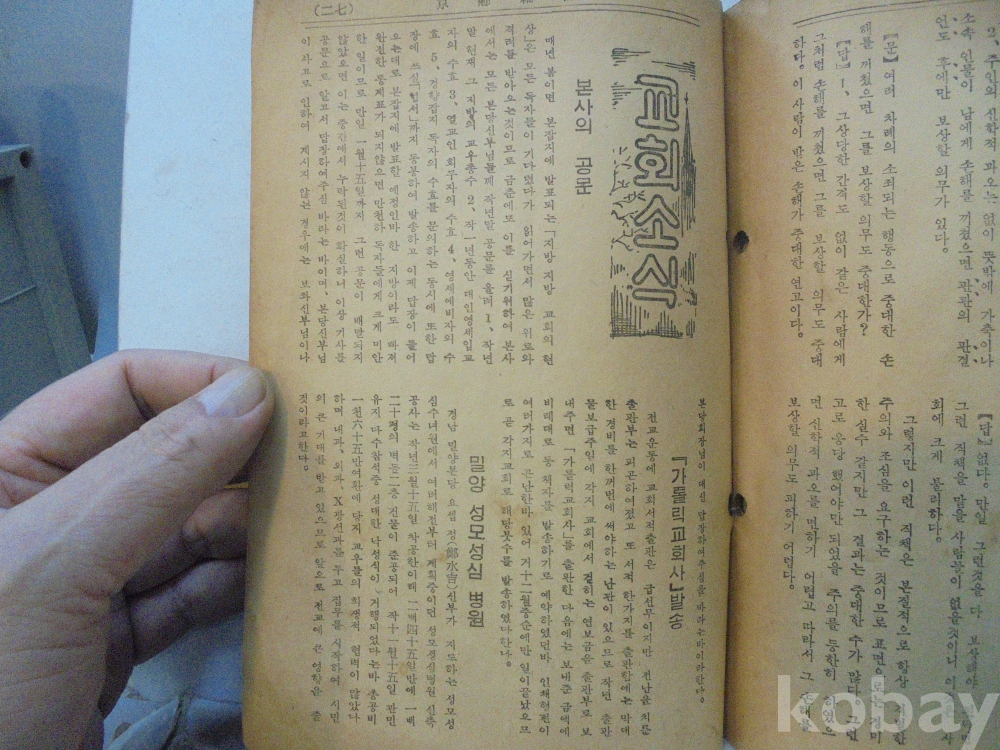 2, 주인의 신학적 과오는 없이 뜻밖에 가축이나
소속 인물이 남에게 손해를 끼쳤으면 관관의 판결
언도 후에만 보상할 의무가 있다。
【문】 여러 차례의 소죄되는 행동으로 중대한 손
해를 끼쳤으면 그를 보상할 의무도 중대한가?
【답】 1, 그상당한 간격도 없이 같은 사람에게
그처럼 손해를 끼쳤으면 그를 보상할 의무도 중대
하다。이 사람이 받은 손해가 중대한 연고이다。
【답】 없다。만일 그런것을 다 보상해야
그런 직책을 맡을 사람들이 없을것이니
회에 크게 불리하다。
그렇지만 이런 직책은 본질적으로 항상
주의와 조심을 요구하는 것이므로 표면으로는 경미
한 실수 같지만 그 결과는 중대한 수가 많다。그런
고로 응당 했어야만 되었을 주의를 등한히 하였으
면 신학적 과오를 면하기 어렵고 따라서 그 손해를
보상할 의무도 피하기 어렵다。
(二七)
교회소식
본사의 공문
매년 봄이면 본잡지에 발표되는 「지방 지방 교회의 현
상」은 모든 독자들이 기다렸다가 읽어가면서 많은 위로와
격려를 받아오는것이므로 금춘에도 이를 싣기위하여 본사
에서는 모든 본당신부님들께 작년말 공문을 올려 1, 작년
말 현재 그 지방의 교우총수 2, 작一년동안 대인영세입교
자의 수효 3, 열교인 회두자의 수효 4, 영세예비자의 수
효 5, 경향잡지 독자의 수효를 문의하는 동시에 또한 답
장에 쓰실 엽서까지 동봉하여 발송하고 이제 답장이 들어
오는대로 본잡지에 발표할 예정인바 한 지방이라도 빠져
완전한 통계표가 되지않으면 만천하 독자들에게 크게 미안
한 일이므로 만일 一월十五일까지 그런 공문이 배달되지
않았으면 이는 중간에서 누락된것이 확실하니 이상 기사를
공문으로 알고서 답장하여주심 바라는 바이며、본당신부님
이 사고로 인하여 계시지 않는 경우에는 보좌신부님이나
본당회장님이 대신 답장하여주심을 바라는바이라한다。
「가톨릭교회사」발송
전교운동에 교회서적출판은 급선무이지만 전난을 치른
출판부는 피곤하여졌고 또 서적 한가지를 출판함에는 막대
한 경비를 한꺼번에 써야하는 난관이 있으므로 작년 출판
물보급주일에 각지 교회에서 걷히는 연보금을 출판부로 보
내주면 「가톨릭교회사」를 출판한 다음에는 보내준 금액에
비례대로 동 책자를 발송하기로 예약하였던바 인쇄형편이
여러가지로 곤난한바 있어 거十二월중순에만 일이끝났으므
로 곧 각지교회로 해당못수를 발송하였다한다。
밀양 성모성심 병원
경남 밀양본당 요셉 정(鄭水吉)신부가 지도하는 성모성
심수녀원에서 여러해전부터 계획중이던 성모성심병원 신축
공사는 작년三월十五일 착공한이래 二백四十五일만에 一백
二十평의 벽돌二층 건물이 준공되어 작十一월十五일 관민
유지 다수참석중 성대한 낙성식이 거행되었다는바 총공비
一천六十五만여환에 당지 교우들의 희생적 협력이 많았다
하며 내과、외과、X광선과를 두고 집무를 시작하여 시민
의 큰 기대를 받고 있으므로 앞으로 전교에 큰 영향을 줄
것이라고한다。
kobay